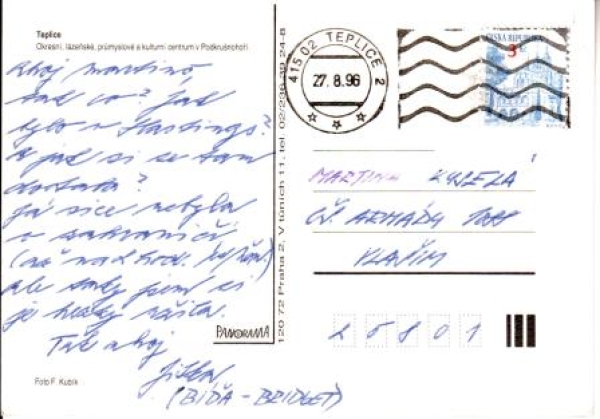 Teplice
Okresní, lázeňské, průmyslové a kulturní centrum v Podkrušnohoří.
Ahoj Martino
tak co? Jak
bylo v Hastings?
A jak si se tam
dostala?
Já sice nebyla
v zahraničí
ale taky jsem si
je hezky užila.
Tak ahoj
Jitka
(BÍĎA - BRIDGET)
Foto F. Kubík
PANORAMA
120 72 Praha 2, V tůních 11, tel. 02/236 39 24-8
415 02 TEPLICE 2
27.8.96
ČESKÁ REPUBLIKA
3
MARTINA KYSELÁ
ČS. ARMÁDY
VLAŠIM
25801